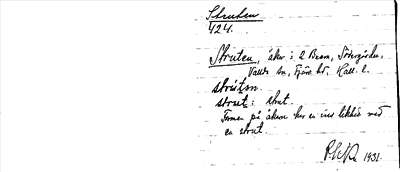 Struten
424.
Struten, åker i 2 Bram, Södergården,
Vallda sn, Fjäre hd, Hall. l.
strut: strut.
Formen på åkern har en viss likhet med
en strut.
1931.